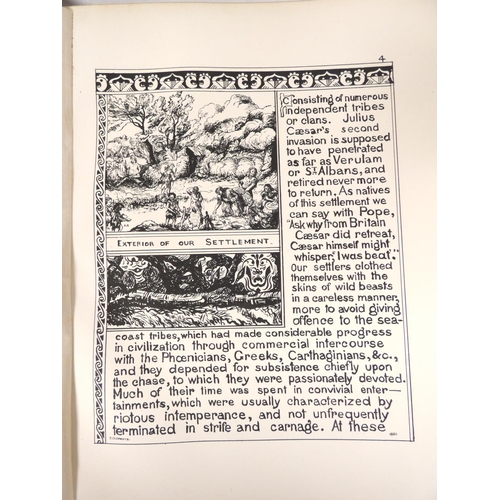 4
Consisting of numerous
independent tribes
or clans. Julius
Cæsar's second
invasion is supposed
to have penetrated
as far as Verulam
or St. Albans, and
retired never more
to return. As natives
of this settlement we
can say with Pope,
"Ask why from Britain
Cæsar did retreat,
Cæsar himself might
whisper, 'I was beat'."
Our settlers clothed
themselves with the
skins of wild beasts
in a careless manner,
more to avoid giving
offence to the sea-
EXTERIOR OF OUR SETTLEMENT.
coast tribes, which had made considerable progress
in civilization through commercial intercourse
with the Phœnicians, Greeks, Carthaginians, &c.,
and they depended for subsistence chiefly upon
the chase, to which they were passionately devoted.
Much of their time was spent in convivial enter-
tainments, which were usually characterized by
riotous intemperance, and not unfrequently
terminated in strife and carnage. At these